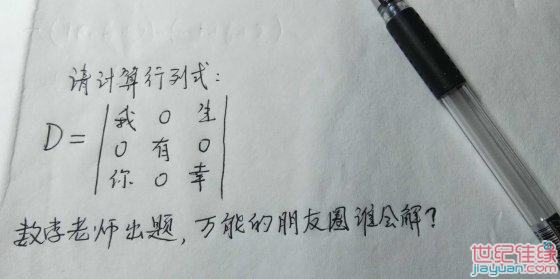 请计算行列式:
D=
我 0 生
0 有 0
你 0 幸
数学老师出题,万能的朋友圈谁会解?
世纪佳缘
jiayuan.com